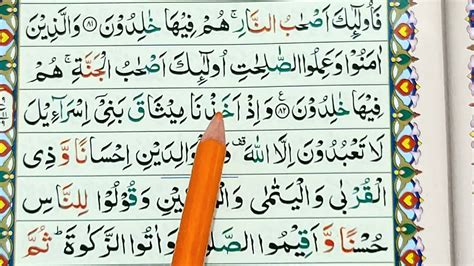 فَاُولٰٓئِكَ اَصْحٰبُ النَّارِ ۚ هُمْ فِيْهَا خٰلِدُوْنَ ﴿٨١﴾ وَالَّذِيْنَ
اٰمَنُوْا وَعَمِلُوا الصّٰلِحٰتِ اُولٰٓئِكَ اَصْحٰبُ الْجَنَّةِ ۚ هُمْ
فِيْهَا خٰلِدُوْنَ ﴿٨٢﴾ وَاِذْ اَخَذْنَا مِيْثَاقَ بَنِيْٓ اِسْرَآءِيْلَ
لَا تَعْبُدُوْنَ اِلَّا اللّٰهَ ۟ اِحْسَانًا وَّ ذِي
الْقُرْبٰى وَالْيَتٰمٰى وَقُوْلُوْا لِلنَّاسِ
حُسْنًا وَّ اَقِيْمُوا وَاٰتُوا الزَّكٰوةَ ؕ ثُمَّ